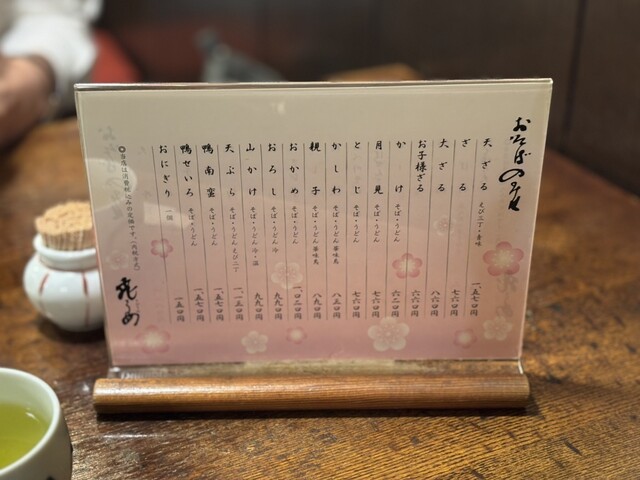 おそばのみせ
天ざる えび二丁・春味 一、五七〇円
ざる 七六〇円
大ざる 八六〇円
お子様ざる 六六〇円
かけ そば・うどん 六二〇円
月見 そば・うどん 七六〇円
とじ そば・うどん 七六〇円
かしわ そば・うどん 華味鳥 八五〇円
親子 そば・うどん 華味鳥 八九〇円
おかめ そば・うどん 一、〇二〇円
おろし そば・うどん 冷 九九〇円
山かけ そば・うどん 冷・温 九九〇円
天ぷら そば・うどん えび二丁 一、一五〇円
鴨南蛮 そば・うどん 一、五七〇円
鴨せいろ そば・うどん 一、五七〇円
おにぎり 一個 一五〇円
◎当店は消費税込みの定価です。(内税方式)